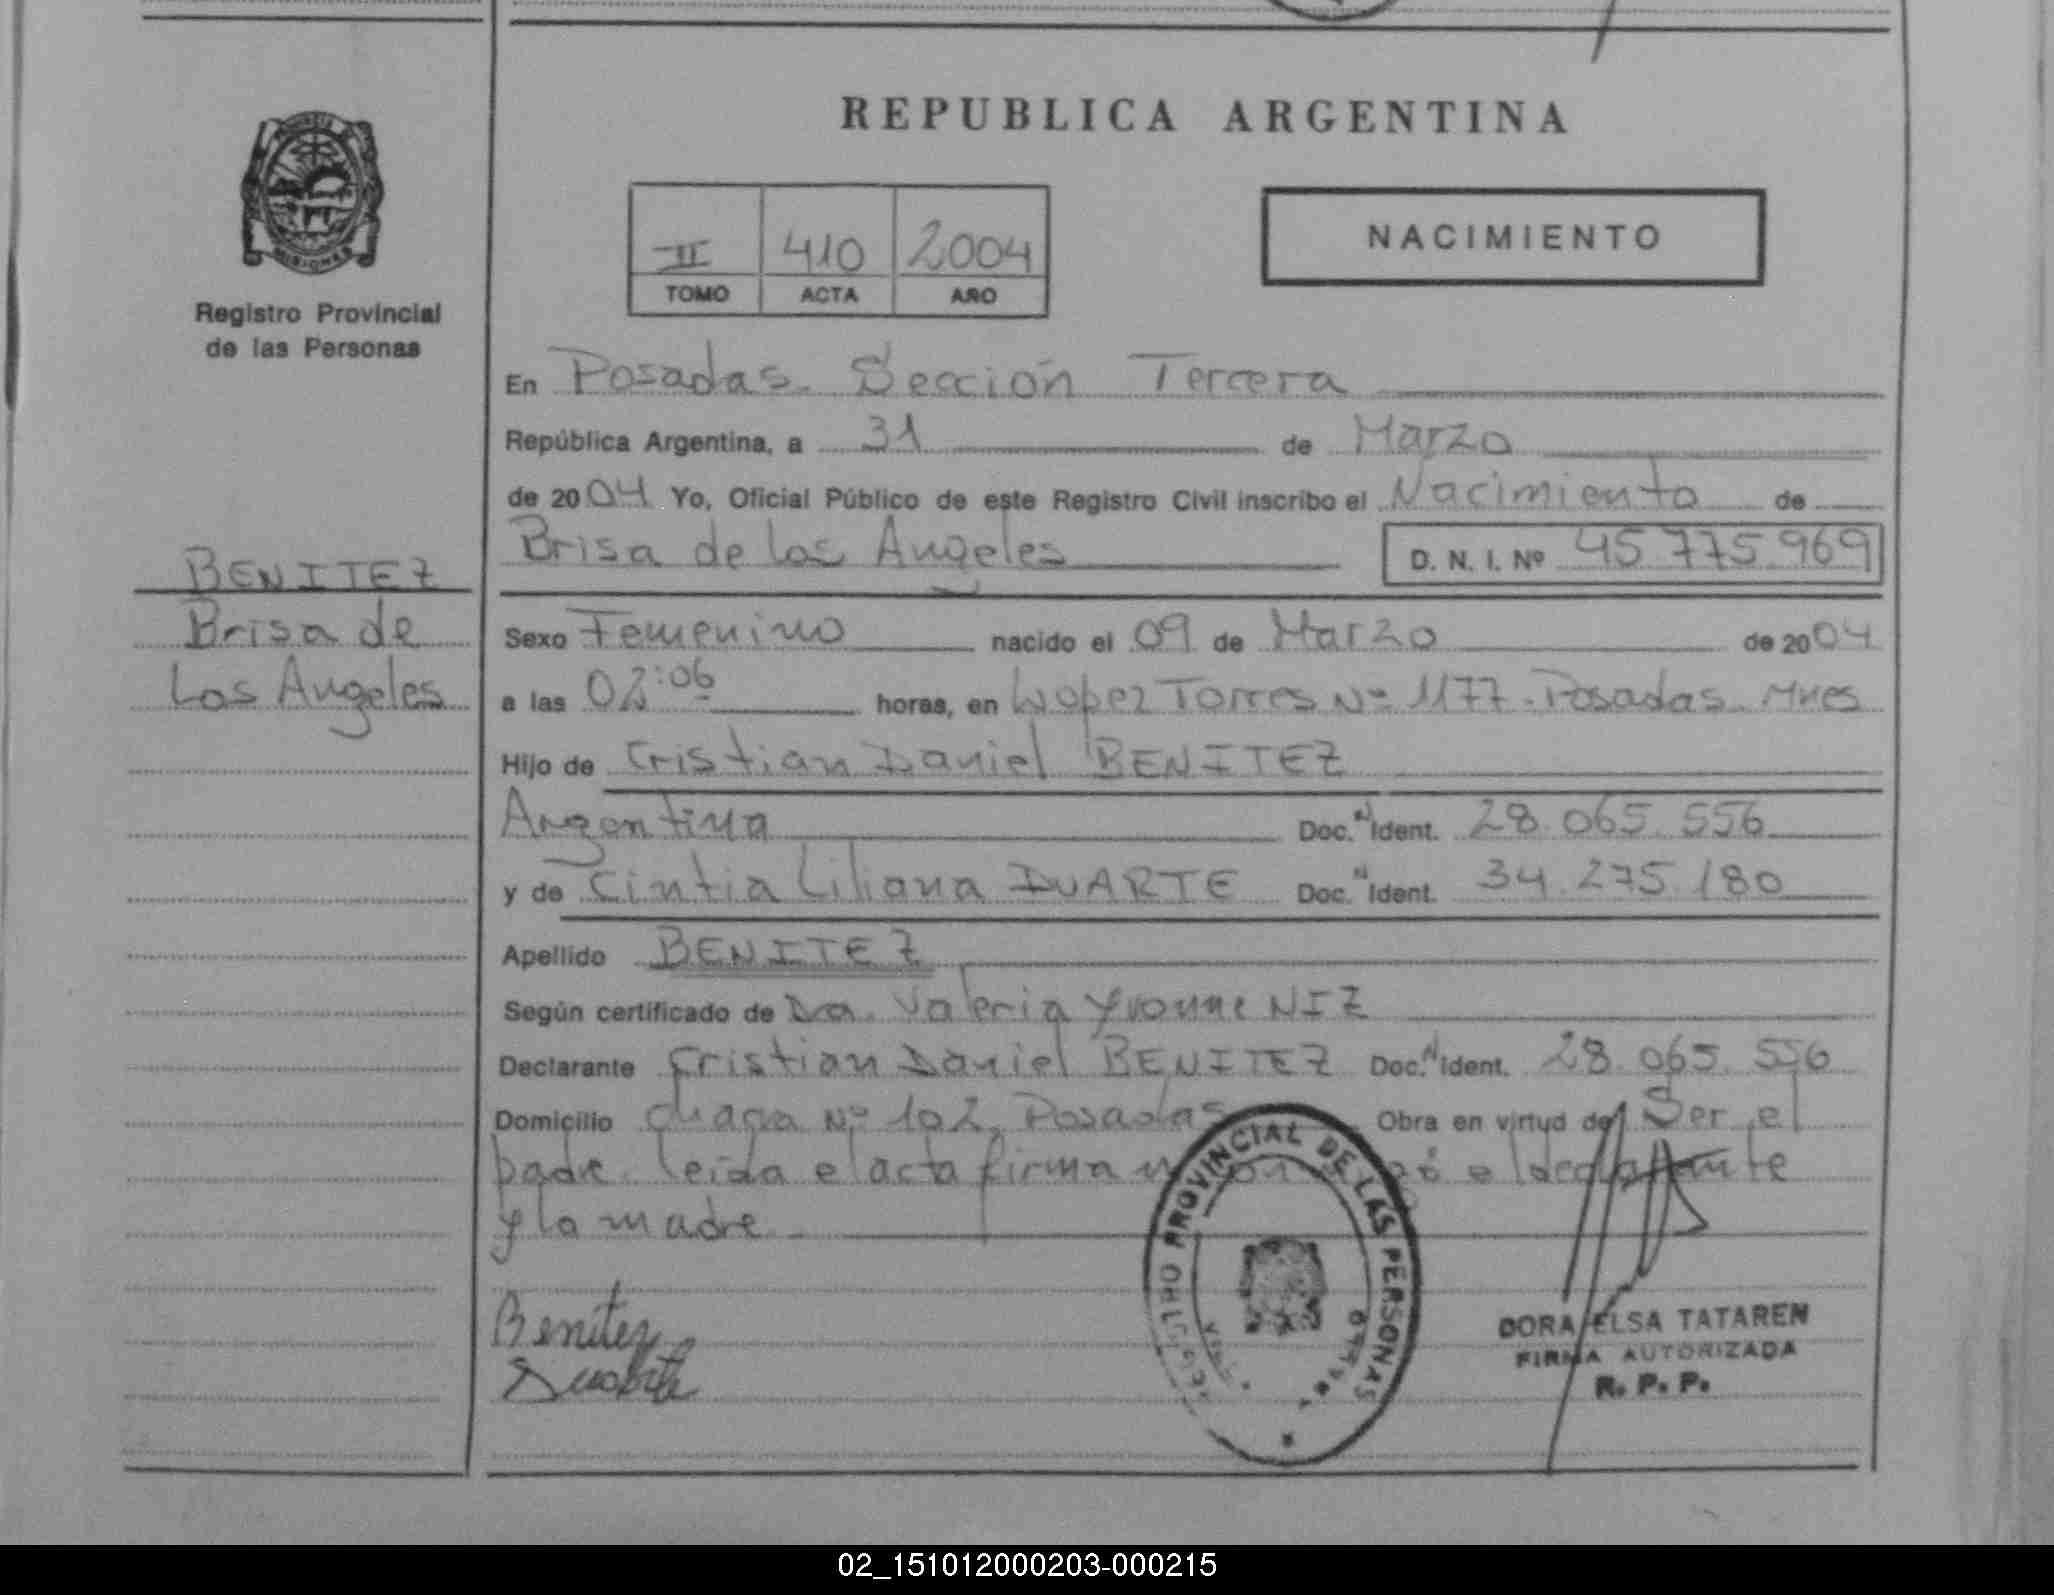 REPUBLICA ARGENTINA
II 410 2004
TOMO ACTA AÑO
NACIMIENTO
PROVINCIA DE
MISIONES
Registro Provincial
de las Personas
BENITEZ
Brisa de
Los Angeles
En Posadas. Sección Tercera
República Argentina, a 31 de Marzo
de 2004 Yo, Oficial Público de este Registro Civil inscribo el Nacimiento de
Brisa de los Angeles D. N. I. Nº 45.775.969
Sexo Femenino nacido el 09 de Marzo de 2004
a las 02:06 horas, en López Torres Nº 1177. Posadas. Mnes
Hijo de Cristian Daniel BENITEZ
Argentina Doc. N Ident. 28.065.556
y de Cintia Liliana DUARTE Doc. N Ident. 34.275.180
Apellido BENITEZ
Según certificado de Dra. Valeria Yvonne NIZ
Declarante Cristian Daniel BENITEZ Doc. N Ident. 28.065.556
Domicilio Chaca Nº 102. Posadas Obra en virtud de Ser el
padre. Leida el acta firma el declarante
y la madre.
Benitez
Duarte
REGISTRO PROVINCIAL DE LAS PERSONAS
DORA ELSA TATAREN
FIRMA AUTORIZADA
R. P. P.
02_151012000203-000215